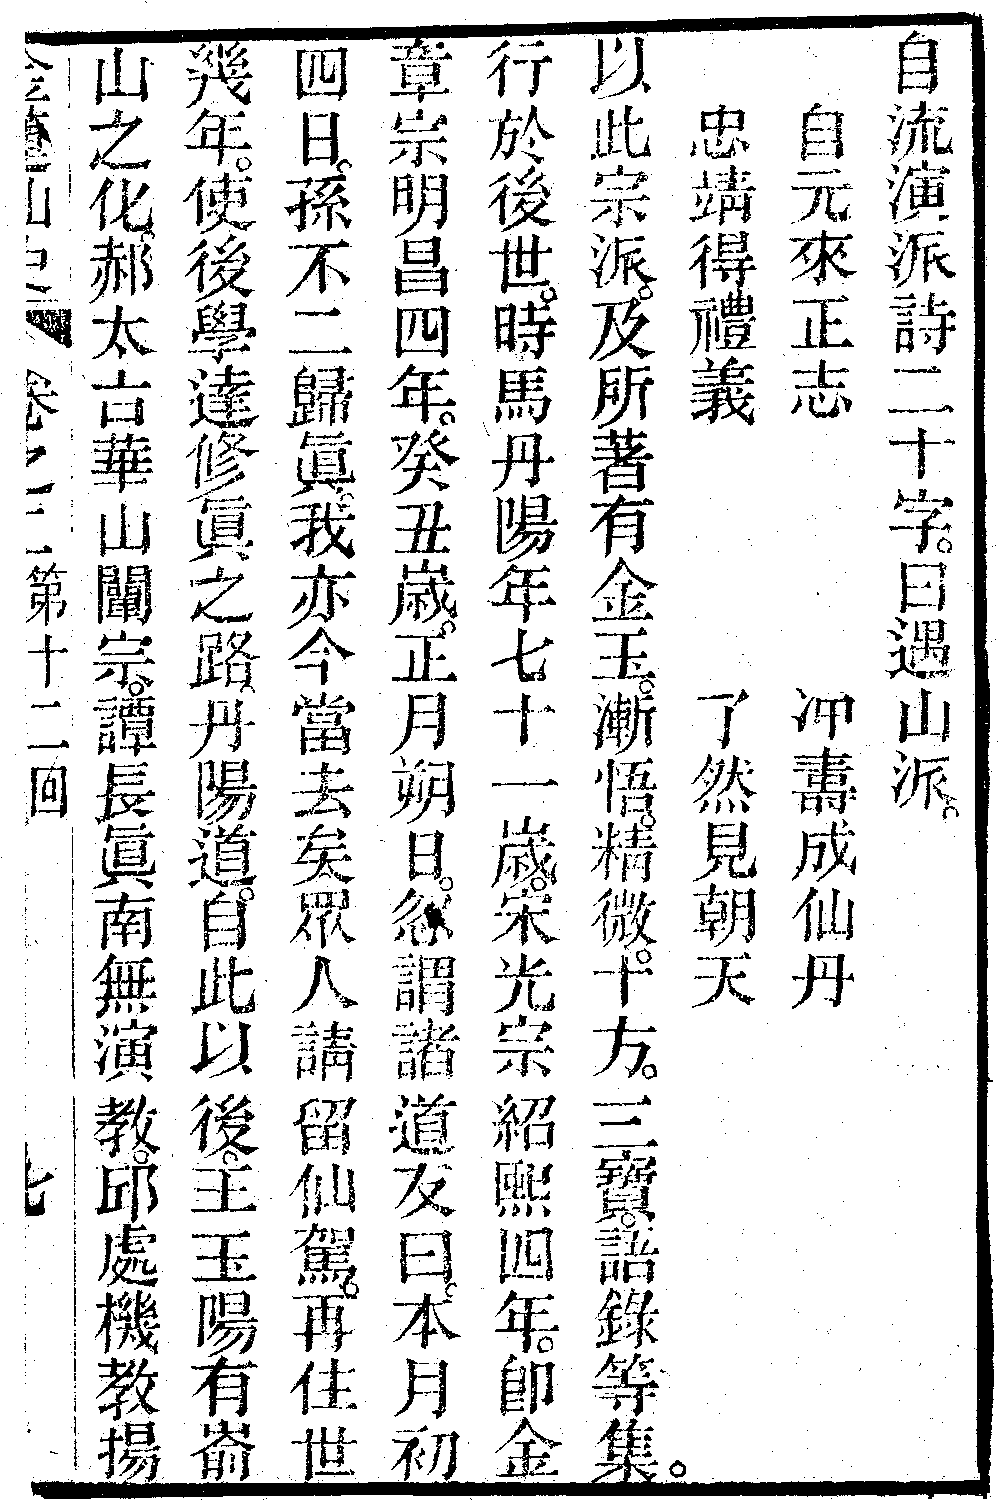 自流演派詩二十字。曰遇山派。
自元來正志　沖壽成仙丹
忠靖得禮義　了然見朝天
以此宗派。及所著有金玉。漸悟。精微。十方。三寶。語錄等集。
行於後世。時馬丹陽年七十一歲。宋光宗紹熙四年。卽金
章宗明昌四年。癸丑歲。正月朔日。忽謂諸道友曰。本月初
四日。孫不二歸眞。我亦今當去矣眾人請留仙駕。再住世
幾年。使後學達修眞之路。丹陽道。自此以後。王玉陽有崙
山之化。郝太古華山闡宗。譚長眞南無演教。邱處機教揚
金蓋山史 卷之二 第十二回 七